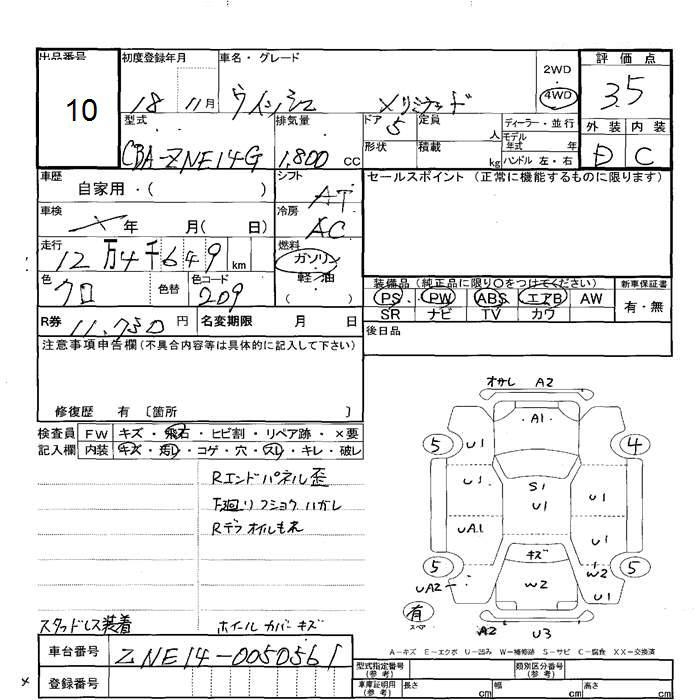 出品番号 10
初度登録年月 18 11月
車名・グレード ウィッシュ Xリミテッド
2WD
4WD
評価点 3.5
外装 D
内装 C
型式 CBA-ZNE14G
排気量 1,800 cc
ドア 5
定員 人
形状
積載 kg
ディーラー・並行
モデル年式 年
ハンドル 左・右
車歴 自家用・( )
シフト AT
セールスポイント (正常に機能するものに限ります)
車検 年 月( 日)
冷房 AC
走行 12万4千649 km
燃料 ガソリン・軽油 ( )
色 クロ
色替
色コード 209
装備品(純正品に限り〇をつけてください)
新車保証書
PS PW ABS エアB AW
有・無
SR ナビ TV カワ
R券 11,730 円
名変期限 月 日
後日品
注意事項申告欄(不具合内容等は具体的に記入して下さい)
修復歴 有 〔箇所 〕
検査員記入欄
FW キズ・飛石・ヒビ割・リペア跡・×要
内装 キズ・汚レ・コゲ・穴・スレ・キレ・破レ
Rエンドパネル歪
下廻りフショクハガレ
Rデフオイルもれ
スタッドレス装着
ホイールカバーキズ
オカレ A2
A1
5
U1
4
U1
S1
U1
U1
UA1
U1
キズ
5
5
UA2
W2
W2
U1
有
スペア
A2
U3
A-キズ E-エクボ U-凹み W-補修跡 S-サビ C-腐食 XX-交換済
車台番号 ZNE14-0050561
登録番号
型式指定番号(参考)
類別区分番号(参考)
車庫証明用(参考) 長さ cm 幅 cm 高さ cm